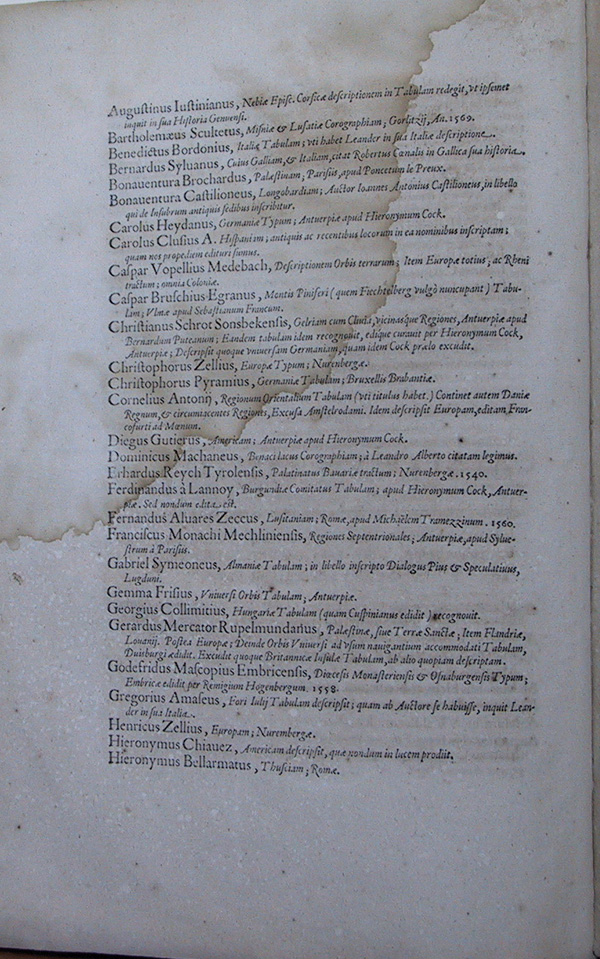 Augustinus Iustinianus, Nebiæ Episc. Corsicæ descriptionem in Tabulam redegit, vt ipsemet
inquit in sua Historia Genuensi.
Bartholemæus Scultetus, Misniæ & Lusatiæ Corographiam; Gorlitzij, An. 1569.
Benedictus Bordonius, Italiæ Tabulam; vti habet Leander in sua Italiæ descriptione.
Bernardus Syluanus, Cuius Galliam, & Italiam, citat Robertus Cænalis in Gallica sua historia.
Bonauentura Brochardus, Palæstinam; Parisiis, apud Poncetum le Preux.
Bonauentura Castilioneus, Longobardiam; Auctor Ioannes Antonius Castilioneus, in libello
qui de Insubrum antiquis sedibus inscribitur.
Carolus Heydanus, Germaniæ Typum; Antuerpiæ apud Hieronymum Cock.
Carolus Clusius A. Hispaniam; antiquis ac recentibus locorum in ea nominibus inscriptam;
quam nos propediem edituri sumus.
Caspar Vopellius Medebach, Descriptionem Orbis terrarum; Item Europæ totius; ac Rheni
tractum; omnia Coloniæ.
Caspar Bruschius Egranus, Montis Piniferi (quem Fiechtelberg vulgò nuncupant) Tabu-
lam; Vlmæ apud Sebastianum Francum.
Christianus Schrot Sonsbekensis, Gelriam cum Cliuia, vicinasque Regiones, Antuerpiæ apud
Bernardum Puteanum; Eandem tabulam idem recognouit, edique curauit per Hieronymum Cock,
Antuerpiæ; Descripsit quoque vniuersam Germaniam, quam idem Cock prælo excudit.
Christophorus Zellius, Europæ Typum; Nurenbergæ.
Christophorus Pyramius, Germaniæ Tabulam; Bruxellis Brabantiæ.
Cornelius Antonij, Regionum Orientalium Tabulam (vti titulus habet.) Continet autem Daniæ
Regnum, & circumiacentes Regiones, Excusa Amstelrodami. Idem descripsit Europam, editam Fran-
cofurti ad Mœnum.
Diegus Gutierus, Americam; Antuerpiæ apud Hieronymum Cock.
Dominicus Machaneus, Benaci lacus Corographiam; à Leandro Alberto citatam legimus.
Erhardus Reych Tyrolensis, Palatinatus Bauariæ tractum; Nurenbergæ. 1540.
Ferdinandus à Lannoy, Burgundiæ Comitatus Tabulam; apud Hieronymum Cock, Antuer-
piæ. Sed nondum edita est.
Fernandus Aluares Zeccus, Lusitaniam; Romæ, apud Michaëlem Tramezzinum. 1560.
Franciscus Monachi Mechliniensis, Regiones Septentrionales; Antuerpiæ, apud Sylue-
strum à Parisiis.
Gabriel Symeoneus, Almaniæ Tabulam; in libello inscripto Dialogus Pius & Speculatiuus,
Lugduni.
Gemma Frisius, Vniuersi Orbis Tabulam; Antuerpiæ.
Georgius Collimitius, Hungariæ Tabulam (quam Cuspinianus edidit) recognouit.
Gerardus Mercator Rupelmundanus, Palæstinæ, siue Terræ Sanctæ; Item Flandriæ,
Louanij. Postea Europæ; Deinde Orbis Vniuersi ad vsum nauigantium accommodati Tabulam,
Duisburgi ædidit. Excudit quoque Britannicæ Insulæ Tabulam, ab alio quopiam descriptam.
Godefridus Mascopius Embricensis, Diœcesis Monasteriensis & Osnaburgensis Typum;
Embricæ edidit per Remigium Hogenbergum. 1558.
Gregorius Amaseus, Fori Iulij Tabulam descripsit; quam ab Auctore se habuisse, inquit Lean-
der in sua Italia.
Henricus Zellius, Europam; Nurembergæ.
Hieronymus Chiauez, Americam descripsit, quæ nondum in lucem prodiit.
Hieronymus Bellarmatus, Thusciam; Romæ.